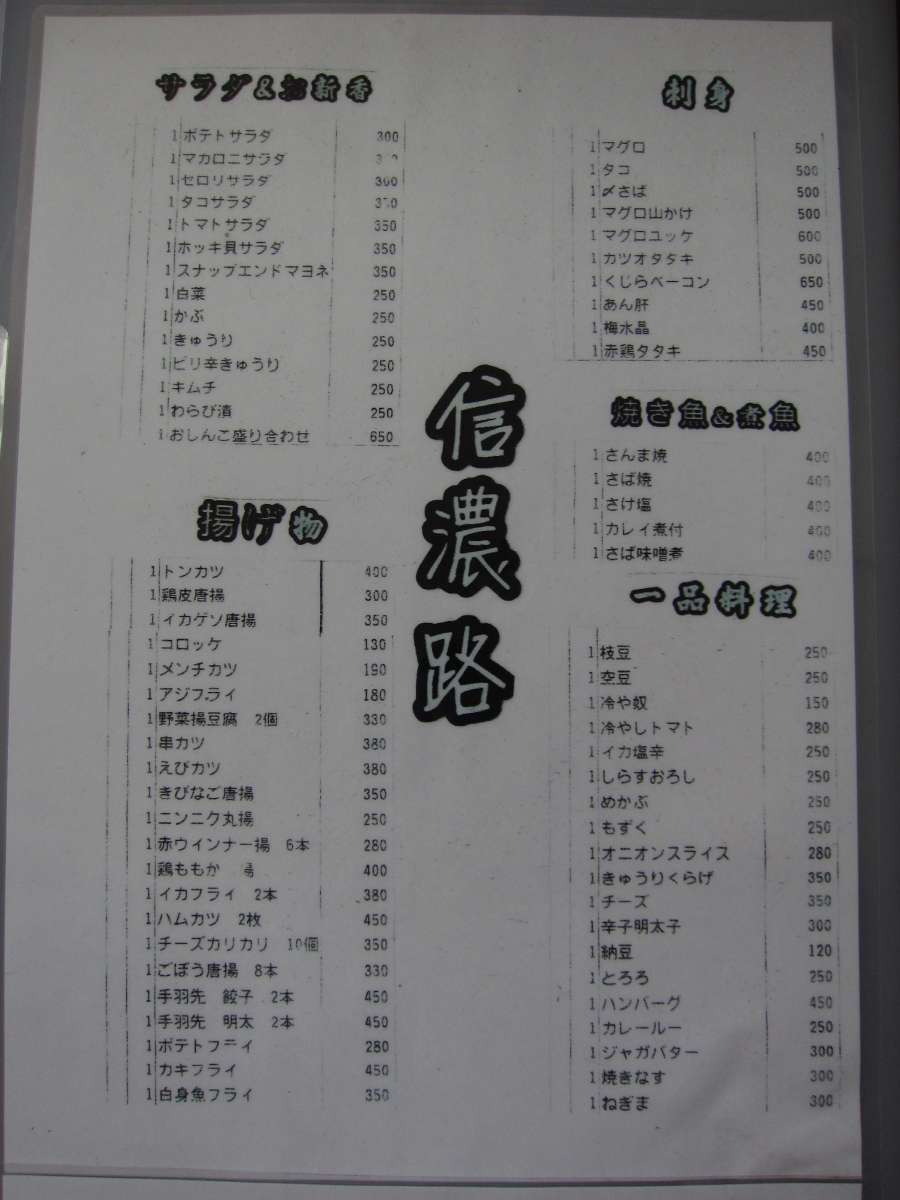 サラダ&お新香
1 ポテトサラダ 300
1 マカロニサラダ
1 セロリサラダ 300
1 タコサラダ
1 トマトサラダ 350
1 ホッキ貝サラダ 350
1 スナップエンドマヨネ 350
1 白菜 250
1 かぶ 250
1 きゅうり 250
1 ピリ辛きゅうり 250
1 キムチ 250
1 わらび漬 250
1 おしんこ盛り合わせ 650
揚げ物
1 トンカツ 400
1 鶏皮唐揚 300
1 イカゲソ唐揚 350
1 コロッケ 130
1 メンチカツ 190
1 アジフライ 180
1 野菜揚豆腐 2個 330
1 串カツ 380
1 えびカツ 380
1 きびなご唐揚 350
1 ニンニク丸揚 250
1 赤ウインナー揚 6本 280
1 鶏ももか 400
1 イカフライ 2本 380
1 ハムカツ 2枚 450
1 チーズカリカリ 10個 350
1 ごぼう唐揚 8本 330
1 手羽先 餃子 2本 450
1 手羽先 明太 2本 450
1 ポテトフライ 280
1 カキフライ 450
1 白身魚フライ 350
信濃路
刺身
1 マグロ 500
1 タコ 500
1 〆さば 500
1 マグロ山かけ 500
1 マグロユッケ 600
1 カツオタタキ 500
1 くじらベーコン 650
1 あん肝 450
1 梅水晶 400
1 赤鶏タタキ 450
焼き魚&煮魚
1 さんま焼 400
1 さば焼 400
1 さけ塩 400
1 カレイ煮付 400
1 さば味噌煮 400
一品料理
1 枝豆 250
1 空豆 250
1 冷や奴 150
1 冷やしトマト 280
1 イカ塩辛 250
1 しらすおろし 250
1 めかぶ 250
1 もずく 250
1 オニオンスライス 280
1 きゅうりくらげ 350
1 チーズ 350
1 辛子明太子 300
1 納豆 120
1 とろろ 250
1 ハンバーグ 450
1 カレールー 250
1 ジャガバター 300
1 焼きなす 300
1 ねぎま 300